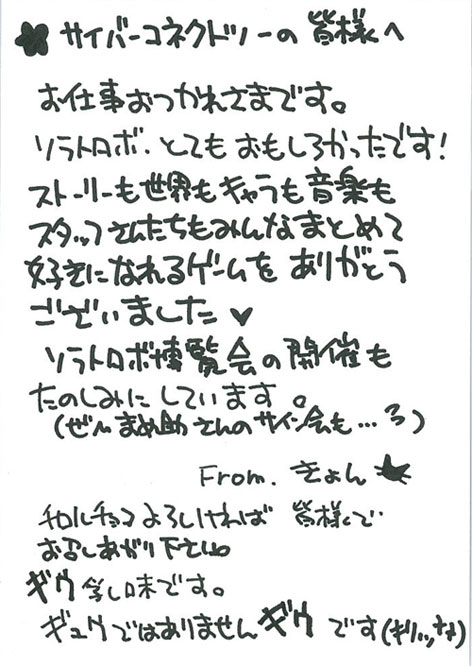 サイバーコネクトツーの 皆様へ
お仕事おつかれさまです。
ソラトロボ、とても おもしろかったです!
ストーリーも世界もキャラも音楽も
スタッフさんたちもみんなまとめて
好きになれるゲームを ありがとう
ございました♥
ソラトロボ博覧会の開催も
たのしみにしています。
(ぜひまめ助さんのサイン会も…3)
From. きょん
チロルチョコよろしければ 皆様で
お召しあがり下さい。
ギウ乳味です。
ギュウではありません ギウ です(キリッ